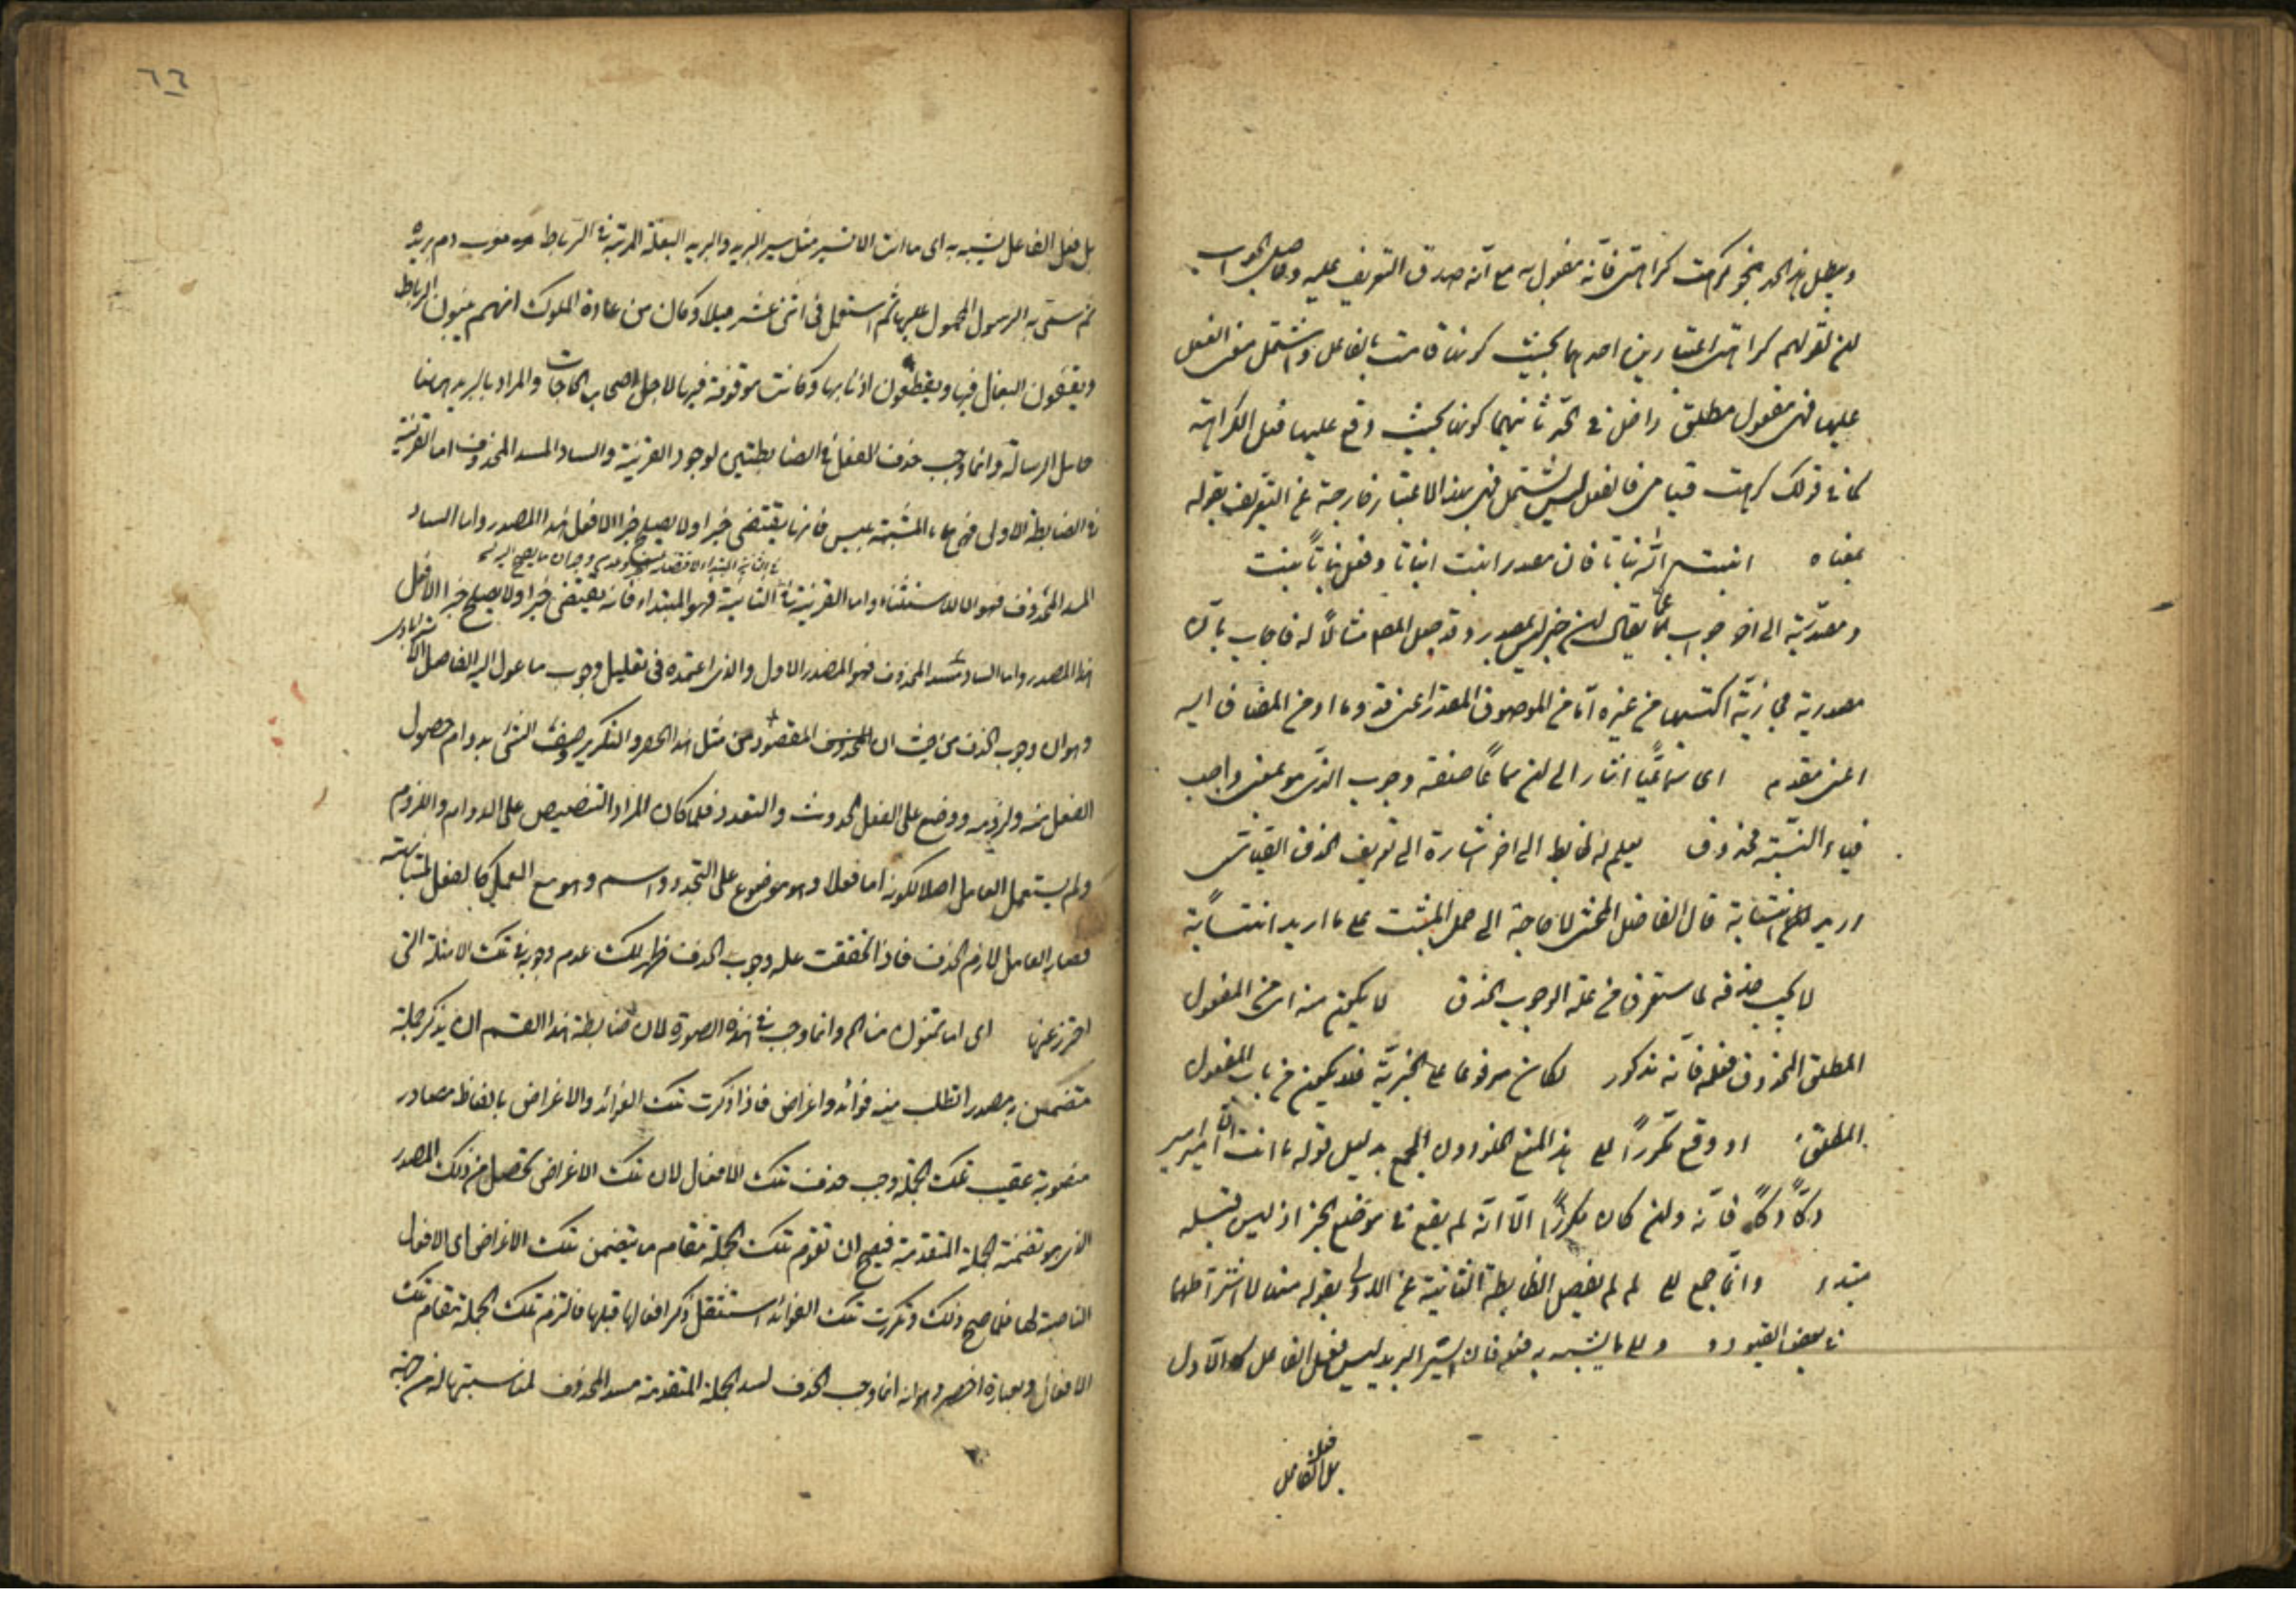 ويبطل هذا الحد بنحو كرهت كراهتى فانه مفعول به مع انه صدق التعريف عليه وحاصل الجواب
ان لقولهم كراهتى اعتبارين احدهما بحيث كونها قامت بالفاعل واشتمل معنى الفعل
عليها فهى مفعول مطلق داخل فى الحد ثانيهما كونها بحيث وقع عليها فعل الكراهة
كما فى قولك كرهت قيامى فالفعل ليس يشتمل فهى بهذا الاعتبار خارجة عن التعريف بقوله
بمعناه انبت الله نباتا فان مصدر انبت انباتا وفعل نباتا ينبت
ومصدرية الى اخر جواب عما يقال ان خبر ليس بمصدر وقد جعل المص مثالا له فاجاب بان
مصدرية مجازية اكتسبها من غيره اما من الموصوف المقدر اعنى قدوما او من المضاف اليه
اعنى مقدم اى سماعيا اشار الى ان سماعا صفة وجوب الذى هو بمعنى واجب
فياء النسبة محذوف يعلم له ضابط الى اخر اشارة الى تعريف الحذف القياسى
اريد اثباته قال الفاضل المحشى لا حاجة الى حمل المثبت على ما اريد اثباته
لا يجب حذفه لما ستعرف من علة الوجوب الحذف لا يكون منه اى من المفعول
المطلق المحذوف فعله فانه مذكور لكان مرفوعا على الخبرية فلا يكون من باب المفعول
المطلق او وقع مكررا هذا لمنع الخلو دون الجمع بدليل قوله ما انت الا سيرا سيرا
دكا دكا فانه وان كان مكررا الا انه لم يقع فى موضع الخبر اذ ليس قبله
مبتدء وانما جمع لم لم يفصل الضابطة الثانية عن الاولى بقوله منها لاشتراطهما
فى بعض القيود ما يشبه به فعله فان السير البريد ليس فعل الفاعل الاول
بل فعل الفاعل
٦٦
بل فعل الفاعل يشبه به اى ما انت الا تسير مثل سير البريد والبريد البغلة المرتبة فى الرباط معرب دم بريده
ثم سمى به الرسول المحمول عليها ثم استعمل فى اثنى عشر ميلا وكان من عادة الملوك انهم يبنون الرباط
ويقفون البغال فيها ويقطعون اذنابها وكانت موقوفة فيها لاجل اصحاب الحاجات والمراد بالبريد ههنا
حامل الرسالة وانما وجب حذف الفعل فى الضابطتين لوجود القرينة والساد المسد المحذوف اما القرينة
فى الضابطة الاولى فهى ما المشبهة بليس فانها يقتضى خبرا ولا يصلح خبرا الا فعل هذا المصدر واما الساد
المسد المحذوف فهو الا للاستثناء واما القرينة فى الثانية فهو المبتداء فانه يقتضى خبرا ولا يصلح خبرا الا فعل
هذا المصدر واما الساد مسد المحذوف فهو المصدر الاول والذى اعتمده فى تعليل وجوب ما عول اليه الفاضل
وهو ان وجوب الحذف من حيث ان المقصود من مثل هذا الحصر والتكرير وصف الشئ بدوام حصول
الفعل منه ولزومه ووضع على الفعل الحدوث والتجدد فلما كان المراد التنصيص على الدوام واللزوم
ولم يستعمل العامل اصلا لكونه اما فعلا وهو موضوع على التجدد واسم وهو مع العمل كالفعل لمشابهته
فصار العامل لازم الحذف فاذا تحققت علة وجوب الحذف ظهر لك عدم وجوبه فى تلك الامثلة التى
احترز عنها اى اما تمنون منا الخ وانما وجب فى هذه الصورة لان ضابطة هذا القسم ان يذكر جملة
متضمن به مصدر تطلب منه فوائد واغراض فاذا ذكرت تلك الفوائد والاغراض بالفاظ مصادر
منصوبة عقيب تلك الجملة وجب حذف تلك الافعال لان تلك الاغراض تحصل من ذلك المصدر
الذى هو تضمنه الجملة المتقدمة فيصح ان تقوم تلك الجملة مقام ما يتضمن تلك الاغراض اى الافعال
الناصبة لها فلما صح ذلك وتكررت تلك الفوائد استثقل ذكر افعالها قبلها فالتزم تلك الجملة مقام تلك
الافعال وبعبارة اخصر وهو انه انما وجب الحذف لسد الجملة المتقدمة مسد المحذوف لمناسبتها له من جهة